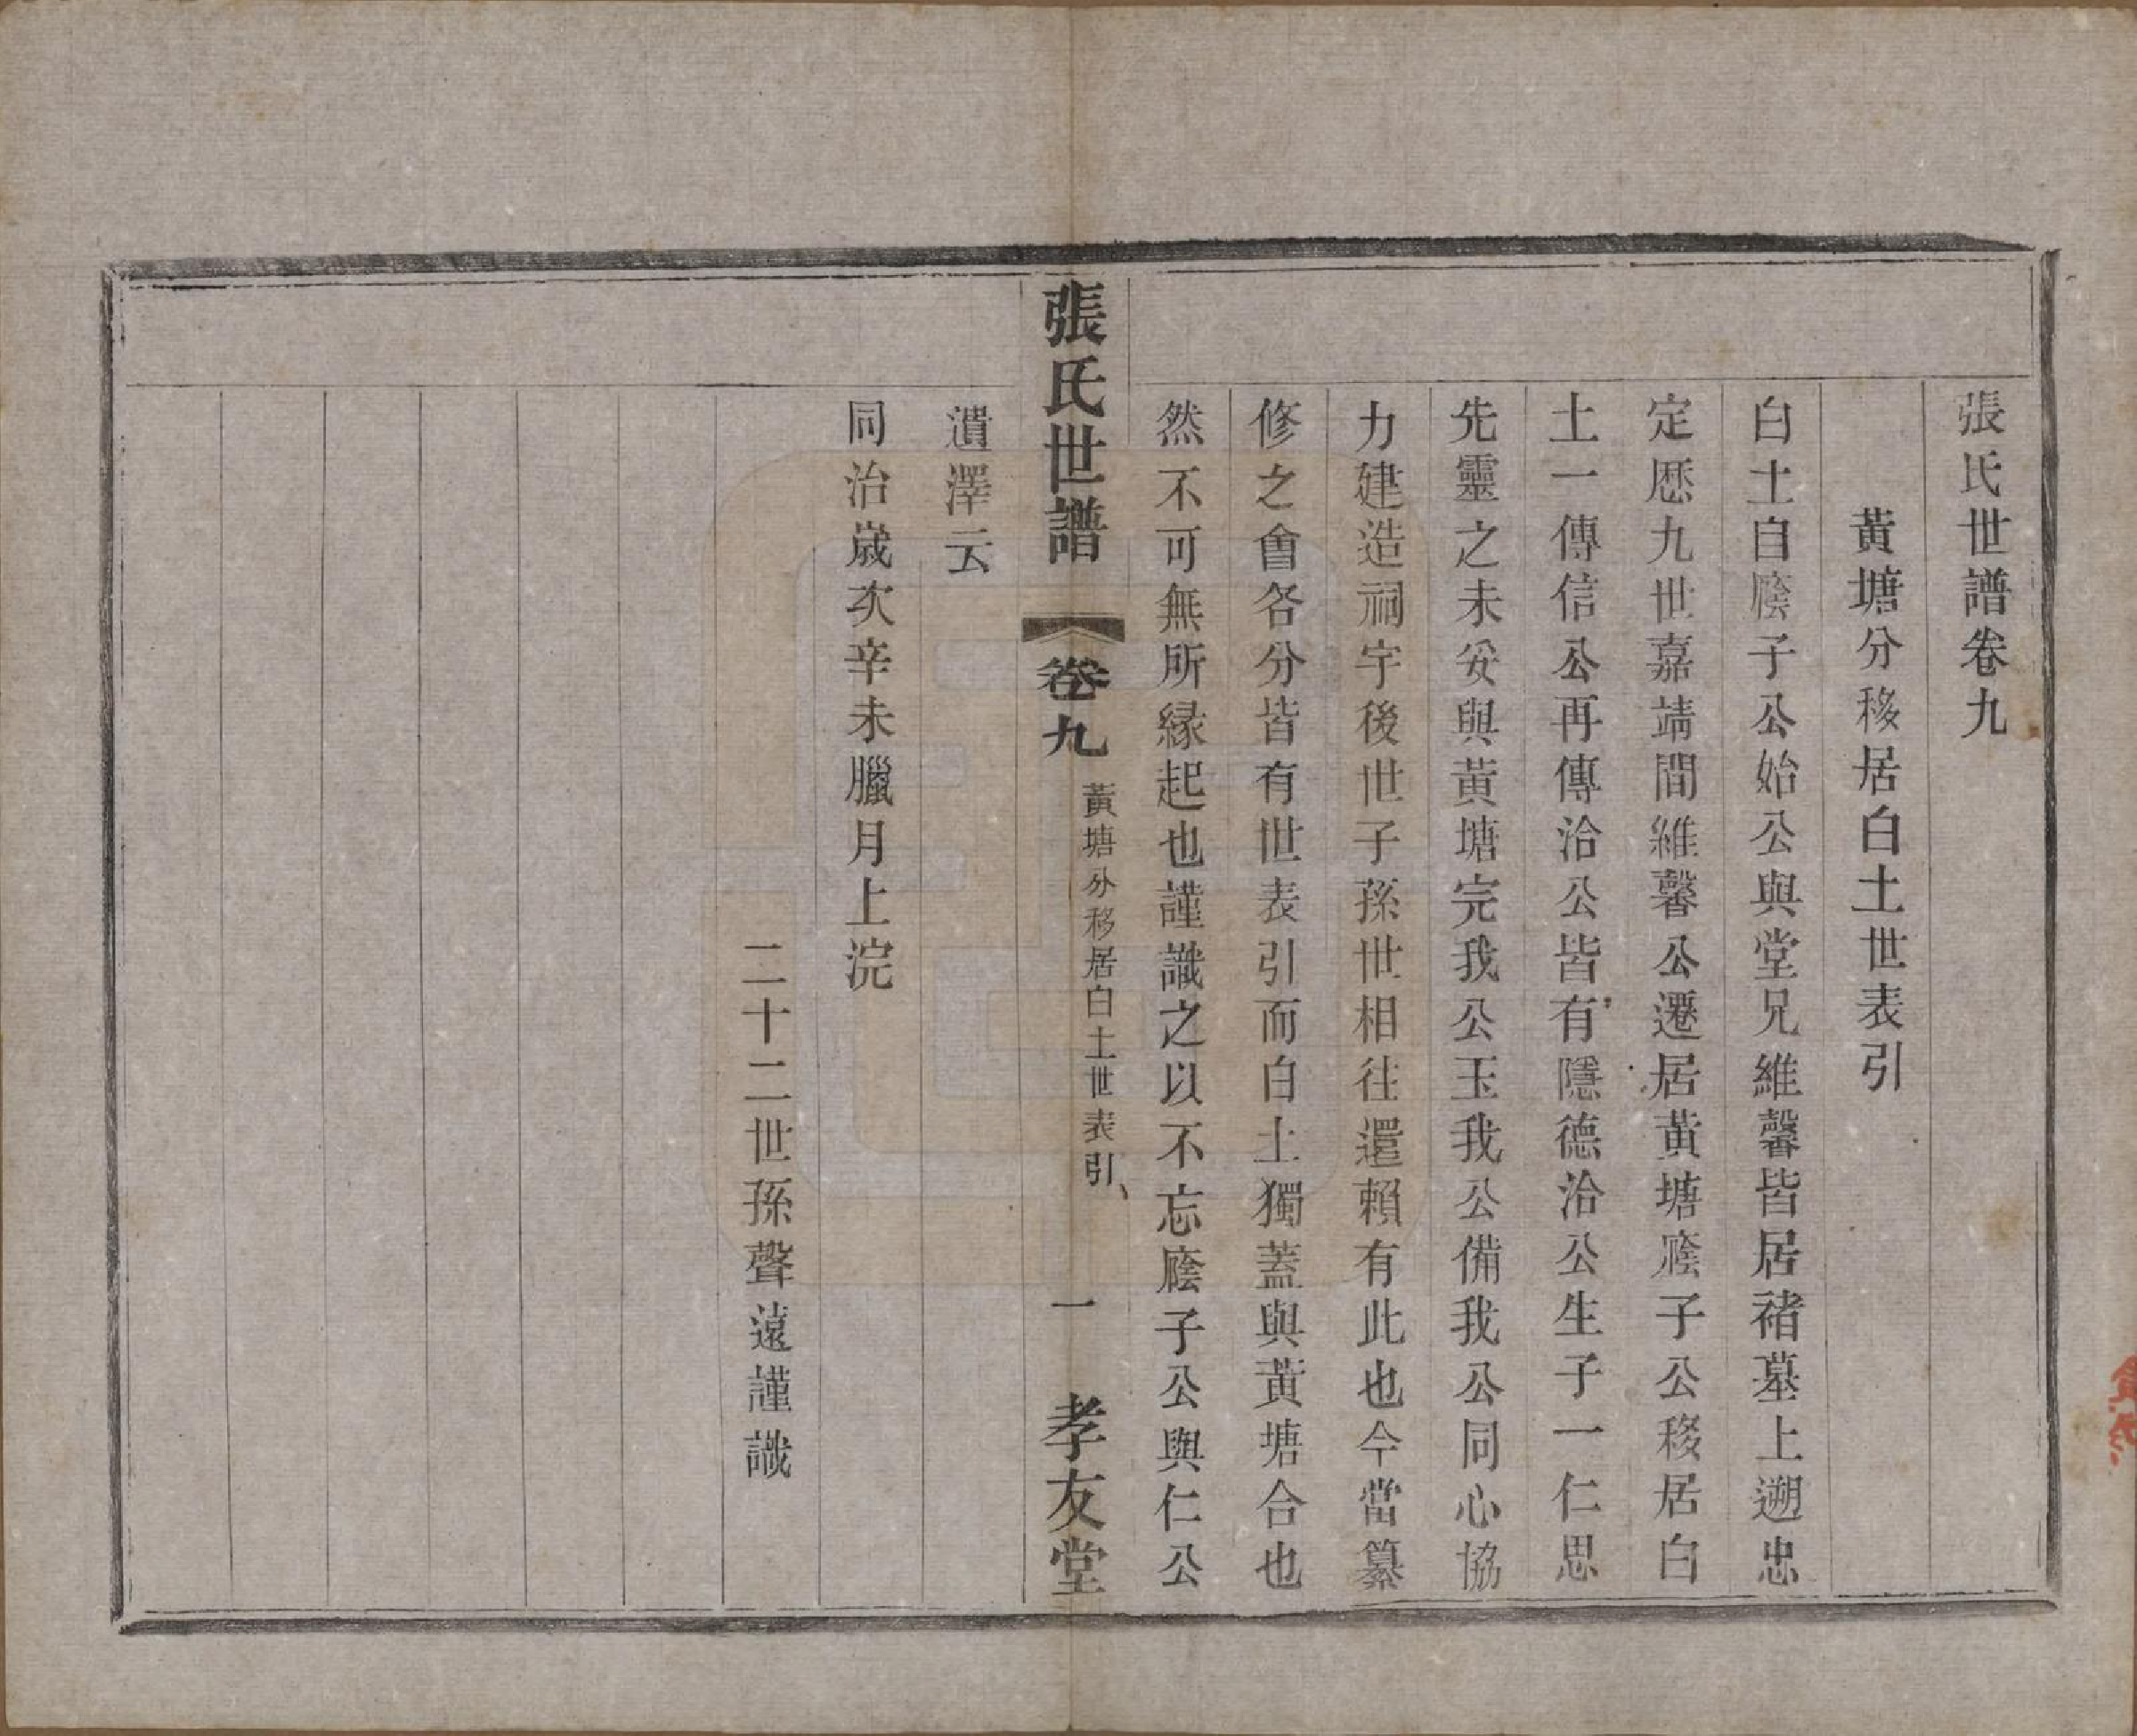 張氏世譜卷九
黃塘分移居白土世表引
白土自廕子公始公與堂兄維馨皆居褚墓上遡忠
定厯九世嘉靖間維馨公遷居黃塘廕子公移居白
土一傳信公再傳洽公皆有隱德洽公生子一仁思
先靈之未妥與黃塘完我公玉我公備我公同心協
力建造祠宇後世子孫世相往還賴有此也今當纂
修之會各分皆有世表引而白土獨蓋與黃塘合也
然不可無所縁起也謹識之以不忘廕子公與仁公
張氏世譜 卷九 黃塘分移居白土世表引 一 孝友堂
遺澤云
同治歲次辛未臘月上浣
二十二世孫聲遠謹識